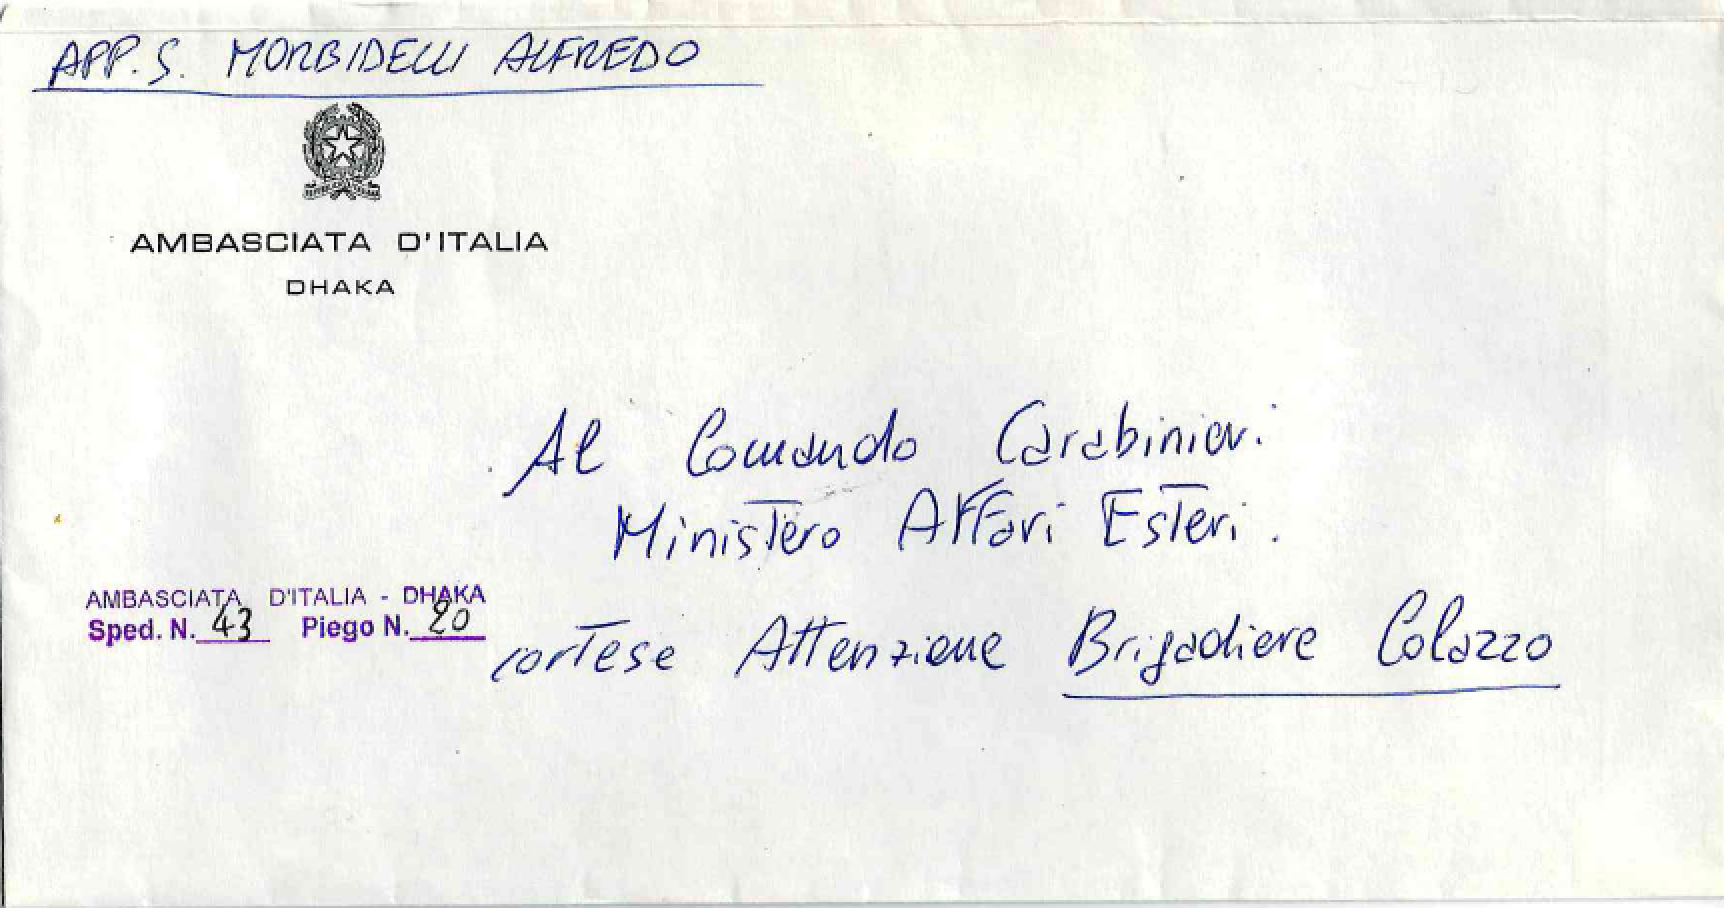 APP. S. MORBIDELLI ALFREDO
AMBASCIATA D'ITALIA
DHAKA
Al Comando Carabinieri
Ministero Affari Esteri.
AMBASCIATA D'ITALIA - DHAKA
Sped. N. 43 Piego N. 20
cortese Attenzione Brigadiere Colazzo